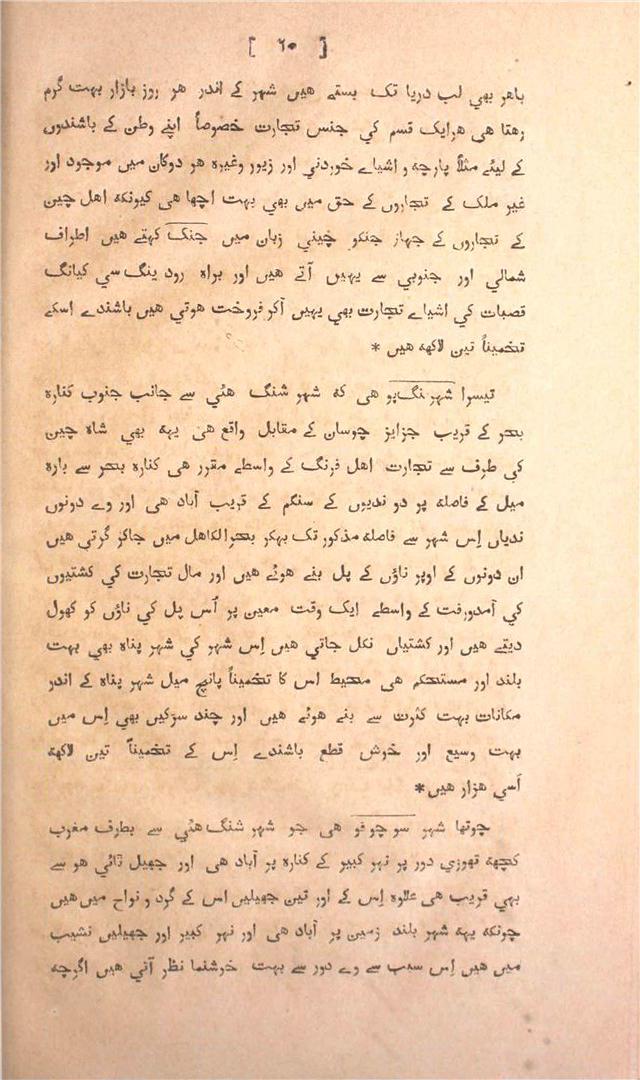 [ ٦٠ ]
باهر بهي لب دريا تک بستے هيں شهر کے اندر هر روز بازار بهت گرم
رهتا هی هرايک قسم کي جنس تجارت خصوصاً اپنے وطن کے باشندوں
کے ليئے مثلاً پارچه و اشياے خوردني اور زيور وغيره هر دوکان ميں موجود اور
غير ملک کے تجاروں کے حق ميں بهي بهت اچها هی کيونکه اهل چين
کے تجاروں کے جهاز جنکو چيني زبان ميں جنک کهتے هيں اطراف
شمالي اور جنوبي سے يهيں آتے هيں اور براه رود ينگ سي کيانگ
قصبات کي اشياے تجارت بهي يهيں آکر فروخت هوتي هيں باشندے اسکے
تخميناً تين لاکهه هيں *
تيسرا شهر ننگ پو هی که شهر شنگ هئي سے جانب جنوب کناره
بحر کے قريب جزايز چوسان کے مقابل واقع هی يهه بهي شاه چين
کي طرف سے تجارت اهل فرنگ کے واسطے مقرر هی کناره بحر سے باره
ميل کے فاصله پر دو نديوں کے سنگم کے قريب آباد هی اور وے دونوں
ندياں اِس شهر سے فاصله مذکور تک بهکر بحر الکاهل ميں جاکر گرتي هيں
ان دونوں کے اوپر ناؤں کے پل بنے هوئے هيں اور مال تجارت کي کشتيوں
کي آمدورفت کے واسطے ايک وقت معين پر اُس پل کي ناؤں کو کهول
ديتے هيں اور کشتياں نکل جاتي هيں اِس شهر کي شهر پناه بهي بهت
بلند اور مستحکم هی محيط اس کا تخميناً پانچ ميل شهر پناه کے اندر
مکانات بهت کثرت سے بنے هوئے هيں اور چند سڑکيں بهي اِس ميں
بهت وسيع اور خوش قطع باشندے اِس کے تخميناً تين لاکهه
اَسي هزار هيں *
چوتها شهر سو چو فو هی جو شهر شنگ هئي سے بطرف مغرب
کچهه تهوڑي دور پر نهر کبير کے کناره پر آباد هی اور جهيل تائي هو سے
بهي قريب هی علاوه اِس کے اور تين جهيليں اس کے گرد و نواح ميں هيں
چونکه يهه شهر بلند زمين پر آباد هی اور نهر کبير اور جهيليں نشيب
ميں هيں اِس سبب سے وے دور سے بهت خوشنما نظر آتي هيں اگرچه